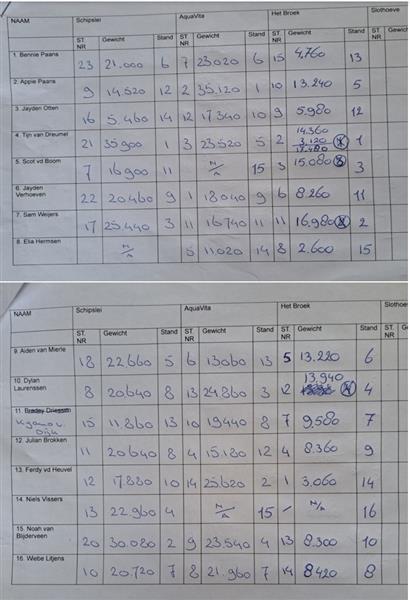 NAAM Schipslei AquaVita Het Broek Slothoeve
ST. NR Gewicht Stand ST. NR Gewicht Stand ST. NR Gewicht Stand ST. NR
1. Bennie Paans 23 21.000 6 7 23.020 6 15 4.760 13
2. Appie Paans 9 14.520 12 2 35.120 1 10 13.240 5
3. Jayden Otten 16 5.460 14 12 17.340 10 9 5.980 12
14.360
4. Tijn van Dreumel 21 35.900 1 3 23.520 5 2 3.120 1
17.480
5. Scot vd Boom 7 16.900 11 N/A 15 3 15.080 3
6. Jayden Verhoeven 22 20.460 9 1 18.040 9 6 8.260 11
7. Sam Weijers 17 25.440 3 11 16.740 11 11 16.980 2
8. Elia Hermsen N/A 5 11.020 14 8 2.600 15
NAAM Schipslei AquaVita Het Broek Slothoeve
ST. NR Gewicht Stand ST. NR Gewicht Stand ST. NR Gewicht Stand ST. NR
9. Aiden van Mierle 18 22.660 5 6 13.060 13 5 13.220 6
13.940
10. Dylan Laurenssen 8 20.640 8 13 24.860 3 12 4
11. Bradey Driessen 15 11.860 13 10 19.440 8 7 9.580 7
12. Julian Brokken 11 20.640 8 4 15.180 12 4 8.360 9
13. Ferdy vd Heuvel 12 17.880 10 14 25.620 2 1 3.060 14
14. Niels Vissers 13 22.960 4 N/A 15 / N/A 16
15. Noah van Blijderveen 20 30.080 2 9 23.540 4 13 8.300 10
16. Wiebe Litjens 10 20.720 7 8 21.960 7 14 8.420 8